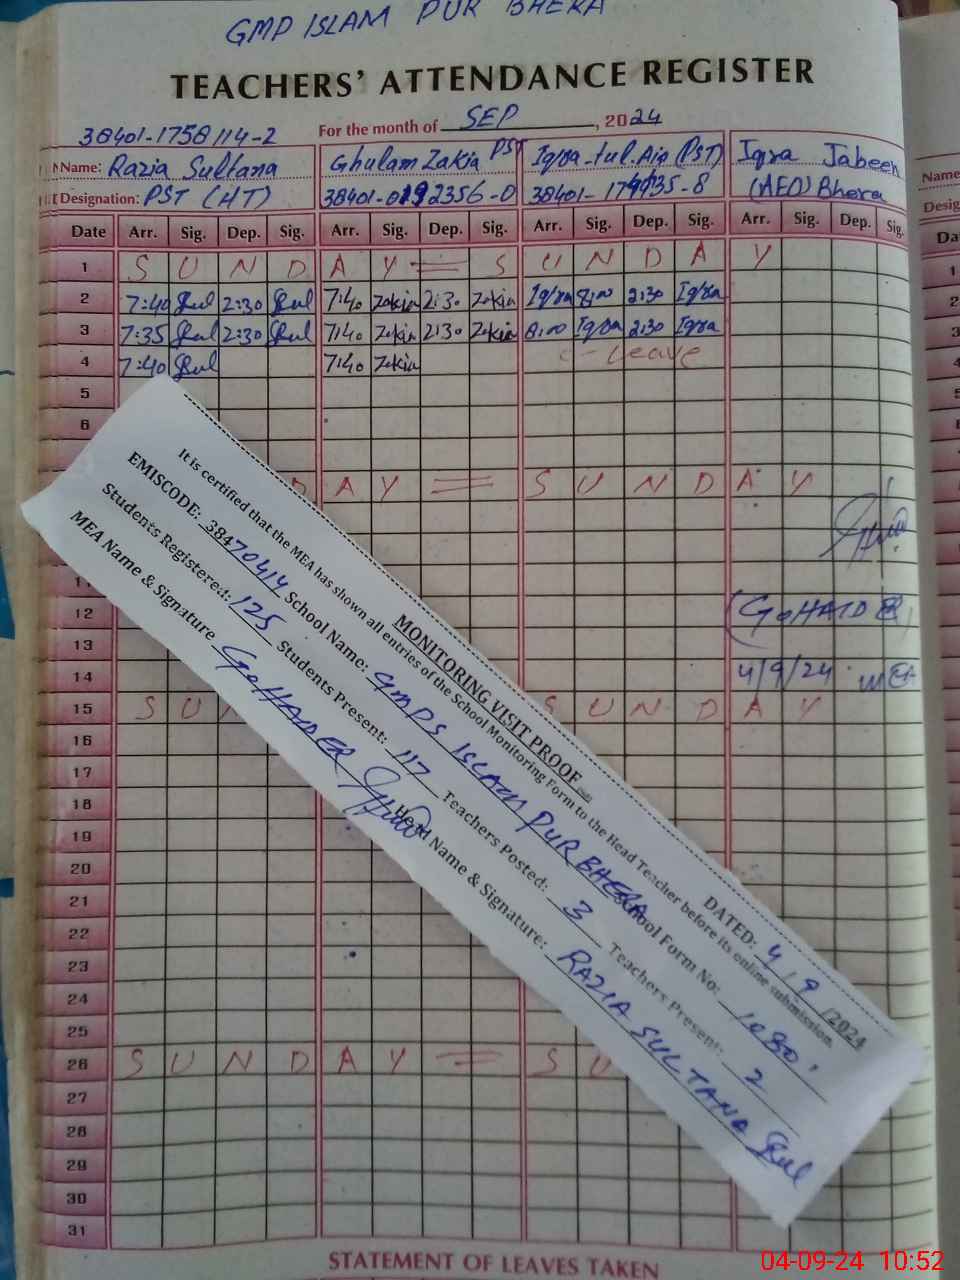 GMP ISLAM PUR BHERA
TEACHERS' ATTENDANCE REGISTER
38401-1758114-2 For the month of SEP, 2024
Name: Razia Sultana Ghulam Zakia PST Iqra-tul-Ain (PST) Iqra Jabeen Name
Designation: PST (HT) 38401-0192356-0 38401- (AEO) Bhera Desig
Date Arr. Sig. Dep. Sig. Arr. Sig. Dep. Sig. Arr. Sig. Dep. Sig. Arr. Sig. Dep. Sig. Da
1 S U N D A Y = S U N D A Y 1
2 7:40 2:30 7:40 Zakia 2:30 Zakia Iqra 8:00 2:30 Iqra 2
3 7:35 2:30 7:40 Zakia 2:30 Zakia 8:00 Iqra 2:30 Iqra 3
4 7:40 7:40 Zakia Leave 4
5
6
D A Y = S U N D A Y
11
12 (GoHAID
13
14 4/9/24
15 S U S U N D A Y
16
17
18
19
20
21
22
23
24
25
26 S U N D A Y = S U
27
28
29
30
31
MONITORING VISIT PROOF
DATED: 4/9/2024
It is certified that the MEA has shown all entries of the School Monitoring Form to the Head Teacher before its online submission.
EMISCODE: 38470414 School Name: GMPS ISLAM PUR BHERA School Form No: 1080
Students Registered: 125 Students Present: 117 Teachers Posted: 3 Teachers Present: 2
MEA Name & Signature GoHADER Head Name & Signature: RAZIA SULTANA
STATEMENT OF LEAVES TAKEN
04-09-24 10:52